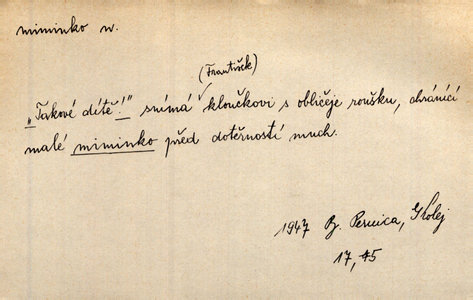 miminko n.
(František)
„Takové dítě!" snímá kloučkovi s obličeje roušku, chránící
malé miminko před dotěrností much.
1947 B. Pernica,
17, 45